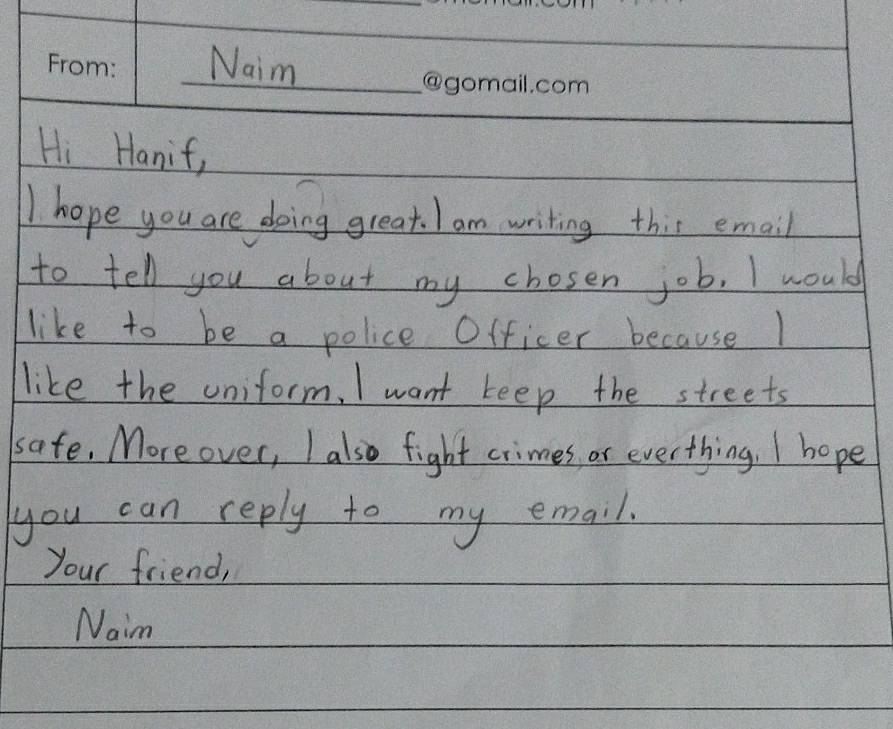 From: Naim @gomail.com
Hi Hanif,
I hope you are doing great. I am writing this email
to tell you about my chosen job. I would
like to be a police Officer because I
like the uniform. I want keep the streets
safe. Moreover, I also fight crimes or everthing. I hope
you can reply to my email.
Your friend,
Naim